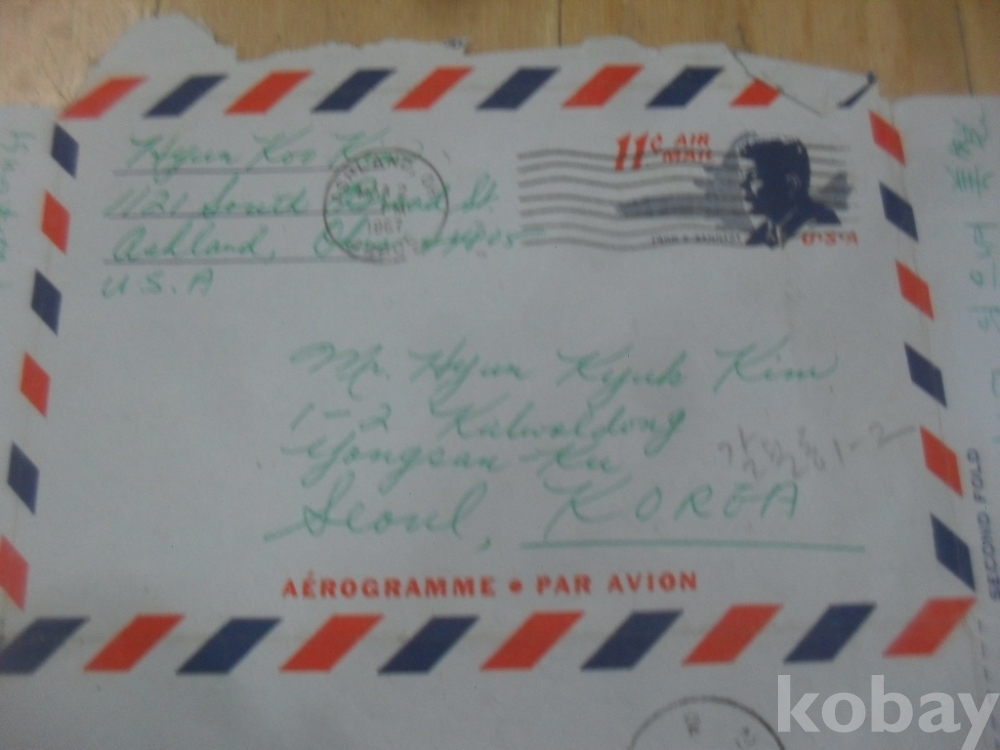 Hyun Koo Kim
1121 South Broad St.
Ashland, Ohio
U.S.A
ASHLAND,
1967
11c AIR
MAIL
U·S·A
Mr. Hyun Kyuk Kim
1-2 Kalwoldong
Yongsan-Ku
갈월동 1-2
Seoul, KOREA
AÉROGRAMME • PAR AVION
SECOND FOLD
kobay